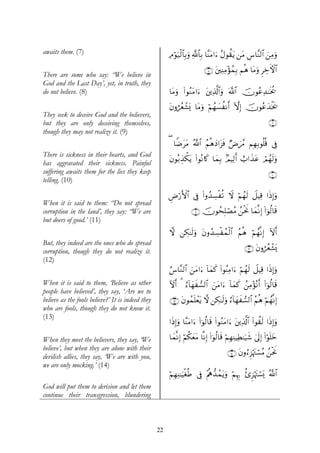 awaits them. (7)
There are some who say: “We believe in
God and the Last Day’, yet, in truth, they
do not believe. (8)
They seek to deceive God and the believers,
but they are only deceiving themselves,
though they may not realize it. (9)
There is sickness in their hearts, and God
has aggravated their sickness. Painful
suffering awaits them for the lies they keep
telling. (10)
When it is said to them: “Do not spread
corruption in the land’, they say: “We are
but doers of good.’ (11)
But, they indeed are the ones who do spread
corruption, though they do not realize it.
(12)
When it is said to them, ‘Believe as other
people have believed’, they say, ‘Are we to
believe as the fools believe?’ It is indeed they
who are fools, though they do not know it.
(13)
When they meet the believers, they say, ‘We
believe’, but when they are alone with their
devilish allies, they say, ‘We are with you,
we are only mocking.’ (14)
God will put them to derision and let them
continue their transgression, blundering
وَمِنَ ٱلنَّاسِ مَن يَقُولُ ءَامَنَّا بِٱللَّهِ وَبِٱلْيَوْمِ
ٱلْآخِرِ وَمَا هُم بِمُؤْمِنِينَ ﴿٨﴾
يُخَٰدِعُونَ ٱللَّهَ وَٱلَّذِينَ ءَامَنُوا۟ وَمَا
يَخْدَعُونَ إِلَّآ أَنفُسَهُمْ وَمَا يَشْعُرُونَ
﴿٩﴾
فِى قُلُوبِهِم مَّرَضٌ فَزَادَهُمُ ٱللَّهُ مَرَضًا ۖ
وَلَهُمْ عَذَابٌ أَلِيمٌۢ بِمَا كَانُوا۟ يَكْذِبُونَ
﴿١٠﴾
وَإِذَا قِيلَ لَهُمْ لَا تُفْسِدُوا۟ فِى ٱلْأَرْضِ
قَالُوٓا۟ إِنَّمَا نَحْنُ مُصْلِحُونَ ﴿١١﴾
أَلَآ إِنَّهُمْ هُمُ ٱلْمُفْسِدُونَ وَلَٰكِن لَّا
يَشْعُرُونَ ﴿١٢﴾
وَإِذَا قِيلَ لَهُمْ ءَامِنُوا۟ كَمَآ ءَامَنَ ٱلنَّاسُ
قَالُوٓا۟ أَنُؤْمِنُ كَمَآ ءَامَنَ ٱلسُّفَهَآءُ ۗ أَلَآ
إِنَّهُمْ هُمُ ٱلسُّفَهَآءُ وَلَٰكِن لَّا يَعْلَمُونَ ﴿١٣﴾
وَإِذَا لَقُوا۟ ٱلَّذِينَ ءَامَنُوا۟ قَالُوٓا۟ ءَامَنَّا وَإِذَا
خَلَوْا۟ إِلَىٰ شَيَٰطِينِهِمْ قَالُوٓا۟ إِنَّا مَعَكُمْ إِنَّمَا
نَحْنُ مُسْتَهْزِءُونَ ﴿١٤﴾
ٱللَّهُ يَسْتَهْزِئُ بِهِمْ وَيَمُدُّهُمْ فِى طُغْيَٰنِهِمْ
22